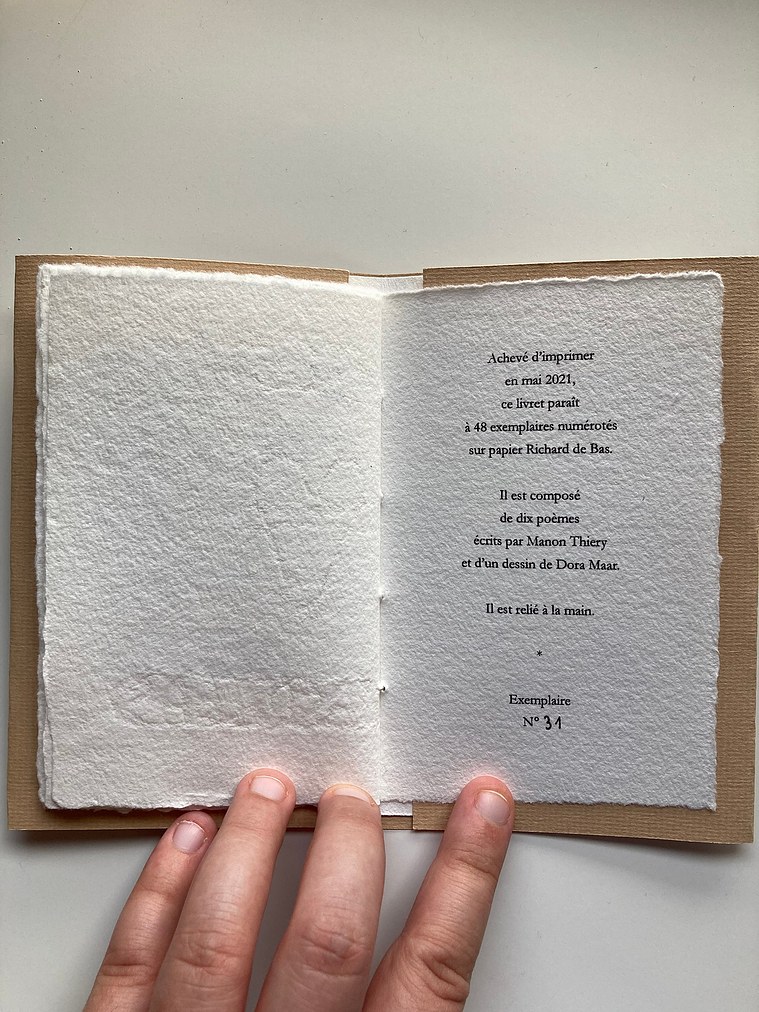 Achevé d'imprimer
en mai 2021,
ce livret paraît
à 48 exemplaires numérotés
sur papier Richard de Bas.
Il est composé
de dix poèmes
écrits par Manon Thiery
et d'un dessin de Dora Maar.
Il est relié à la main.
*
Exemplaire
N° 31